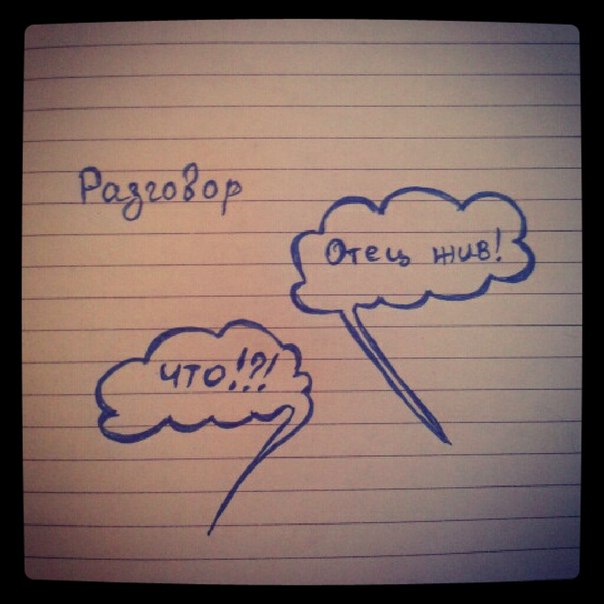 Разговор
Отец жив!
что!?!